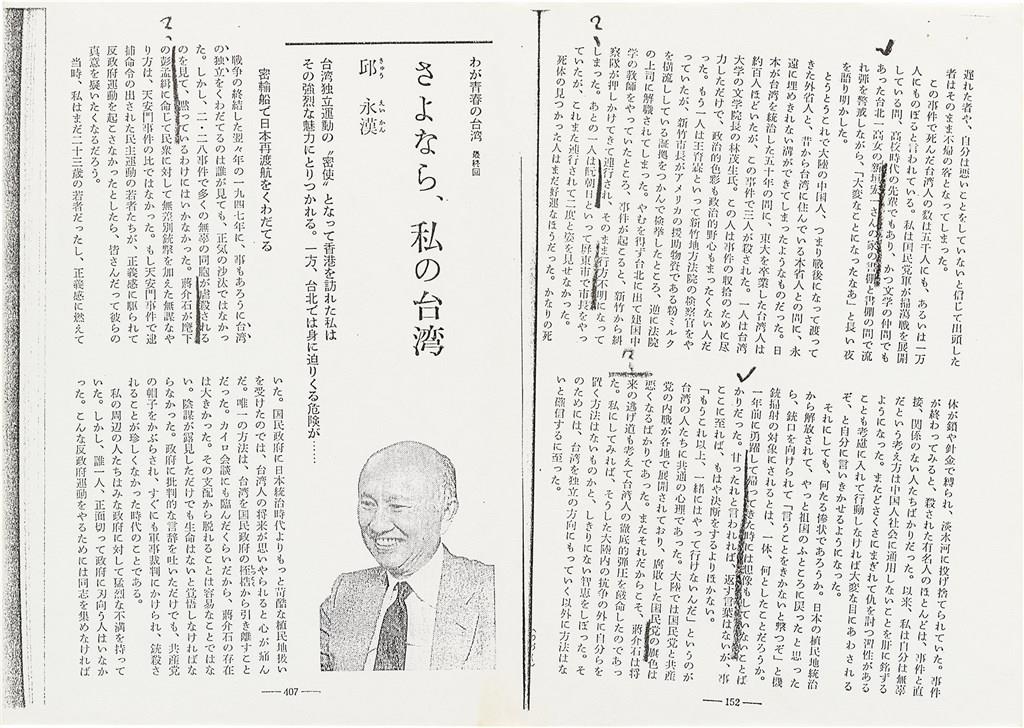 遅れた者や、自分は悪いことをしていないと信じて出頭した
者はそのまま不帰の客となってしまった。
この事件で死んだ台湾人の数は五千人にも、あるいは一万
人にものぼると言われている。私は国民党軍が掃蕩戦を展開
している間、高校時代の先輩でもあり、かつ文学の仲間でも
あった台北一高女の新垣宏一さんの家の書棚と書棚の間で流
れ弾を警戒しながら、「大変なことになったなあ」と長い夜
を語り明かした。
とうとうこれで大陸の中国人、つまり戦後になって渡って
きた外省人と、昔から台湾に住んでいる本省人との間に、永
遠に埋めきれない溝ができてしまったようなものだった。日
本が台湾を統治した五十年の間に、東大を卒業した台湾人は
約百人ほどいたが、この事件で三人が殺された。一人は台湾
大学の文学院長の林茂生氏。この人は事件の収拾のために尽
力しただけで、政治的色彩も政治的野心もまったくない人だ
った。もう一人は王育霖といって新竹地方法院の検察官をや
っていたが、新竹市長がアメリカの援助物資である粉ミルク
を横流ししている証拠をつかんで検挙したところ、逆に法院
の上司に解職されてしまった。やむを得ず台北に出て建国中
学の教師をやっていたところ、事件が起こると、新竹から警
察隊が押しかけてきて連行され、そのまま行方不明になって
しまった。あとの一人は阮朝日といって屏東市で市長をやっ
ていたが、これまた連行されて二度と姿を見せなかった。
死体の見つかった人はまだ好運なほうだった。かなりの死
体が鎖や針金で縛られ、淡水河に投げ捨てられていた。事件
が終わってみると、殺された有名人のほとんどは、事件と直
接、関係のない人たちばかりだった。以来、私は自分は無辜
だという考え方は中国人社会に通用しないことを肝に銘ずる
ようになった。またどさくさにまぎれて仇を討つ習性がある
ことも考慮に入れて行動しなければ大変な目にあわされる
ぞ、と自分に言いきかせるようになった。
それにしても、何たる惨状であろうか。日本の植民地統治
から解放されて、やっと祖国のふところに戻ったと思った
ら、銃口を向けられて「言うことをきかないと撃つぞ」と機
銃掃射の対象にされるとは、一体、何としたことだろうか。
一年前に勇躍して帰ってきた時には想像もしていないことば
かりだった。甘ったれと言われれば、返す言葉はないが、事
ここに至れば、もはや決断をするよりほかない。
「もうこれ以上、一緒にはやって行けないんだ」というのが
台湾の人たちに共通の心理であった。大陸では国民党と共産
党の内戦が各地で展開されており、腐敗した国民党の旗色は
悪くなるばかりであった。またそれだからこそ、蔣介石は将
来の逃げ道も考えて台湾人の徹底的弾圧を厳命したのであっ
た。私にしてみれば、そうした大陸内の抗争の外に自分らを
置く方法はないものかと、しきりにない智恵をしぼった。そ
のためには、台湾を独立の方向にもっていく以外に方法はな
いと確信するに至った。
—152—
わが青春の台湾 最終回
さよなら、私の台湾
邱 永漢
きゅう えいかん
台湾独立運動の〝密使〟となって香港を訪れた私は
その強烈な魅力にとりつかれる。一方、台北では身に迫りくる危険が……
密輸船で日本再渡航をくわだてる
戦争の終結した翌々年の一九四七年に、事もあろうに台湾
の独立をくわだてるのは誰が見ても、正気の沙汰ではなかっ
た。しかし、二・二八事件で多くの無辜の同胞が虐殺される
のを見て、黙っているわけにはいかなかった。蔣介石が麾下
の彭孟緝に命じて民衆に対して無差別銃撃を加えた無謀なや
り方は、天安門事件の比ではなかった。もし天安門事件で逮
捕命令の出された民主運動の若者たちが、正義感に駆られて
反政府運動を起こさなかったとしたら、皆さんだって彼らの
真意を疑いたくなるだろう。
当時、私はまだ二十三歳の若者だったし、正義感に燃えて
いた。国民政府に日本統治時代よりもっと苛酷な植民地扱い
を受けたのでは、台湾人の将来が思いやられると心が痛ん
だ。唯一の方法は、台湾を国民政府の桎梏から引き離すこと
だった。カイロ会談にも臨んだくらいだから、蔣介石の存在
は大きかった。その支配から脱れることは容易なことではな
い。陰謀が露見しただけでも生命はないと覚悟しなければな
らなかった。政府に批判的な言辞を吐いただけでも、共産党
の帽子をかぶらされ、すぐにも軍事裁判にかけられ、銃殺さ
れることが珍しくなかった時代のことである。
私の周辺の人たちはみな政府に対して猛烈な不満を持って
いた。しかし、誰一人、正面切って政府に刃向う人はいなか
った。こんな反政府運動をやるためには同志を集めなければ
—407—